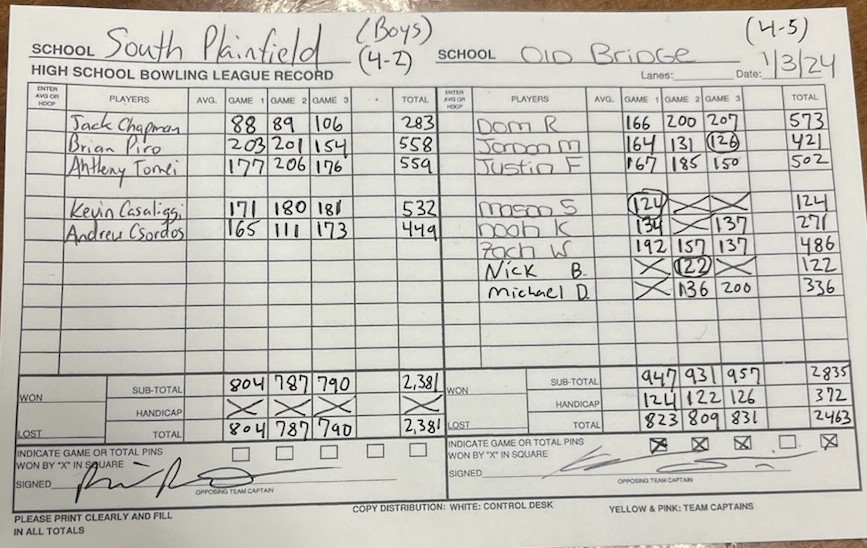 SCHOOL South Plainfield (Boys) (4-2) SCHOOL Old Bridge (4-5)
HIGH SCHOOL BOWLING LEAGUE RECORD Lanes: Date: 1/3/24
ENTER AVG OR HDCP PLAYERS AVG. GAME 1 GAME 2 GAME 3 TOTAL ENTER AVG OR HDCP PLAYERS AVG. GAME 1 GAME 2 GAME 3 TOTAL
Jack Chapman 88 89 106 283 Dom R 166 200 207 573
Brian Piro 203 201 154 558 Jordan M 164 131 126 421
Anthony Tomei 177 206 176 559 Justin F 167 185 150 502
Kevin Casaliggi 171 180 181 532 Mason S 124 X X 124
Andrew Csordos 165 111 173 449 Noah K 134 X 137 271
Zach W 192 157 137 486
Nick B. X 122 X 122
Michael D. X 136 200 336
WON SUB-TOTAL 804 787 790 2,381 WON SUB-TOTAL 947 931 957 2835
HANDICAP X X X X HANDICAP 124 122 126 372
LOST TOTAL 804 787 790 2,381 LOST TOTAL 823 809 831 2463
INDICATE GAME OR TOTAL PINS WON BY "X" IN SQUARE INDICATE GAME OR TOTAL PINS WON BY "X" IN SQUARE X X X X
SIGNED SIGNED
OPPOSING TEAM CAPTAIN OPPOSING TEAM CAPTAIN
PLEASE PRINT CLEARLY AND FILL IN ALL TOTALS COPY DISTRIBUTION: WHITE: CONTROL DESK YELLOW & PINK: TEAM CAPTAINS